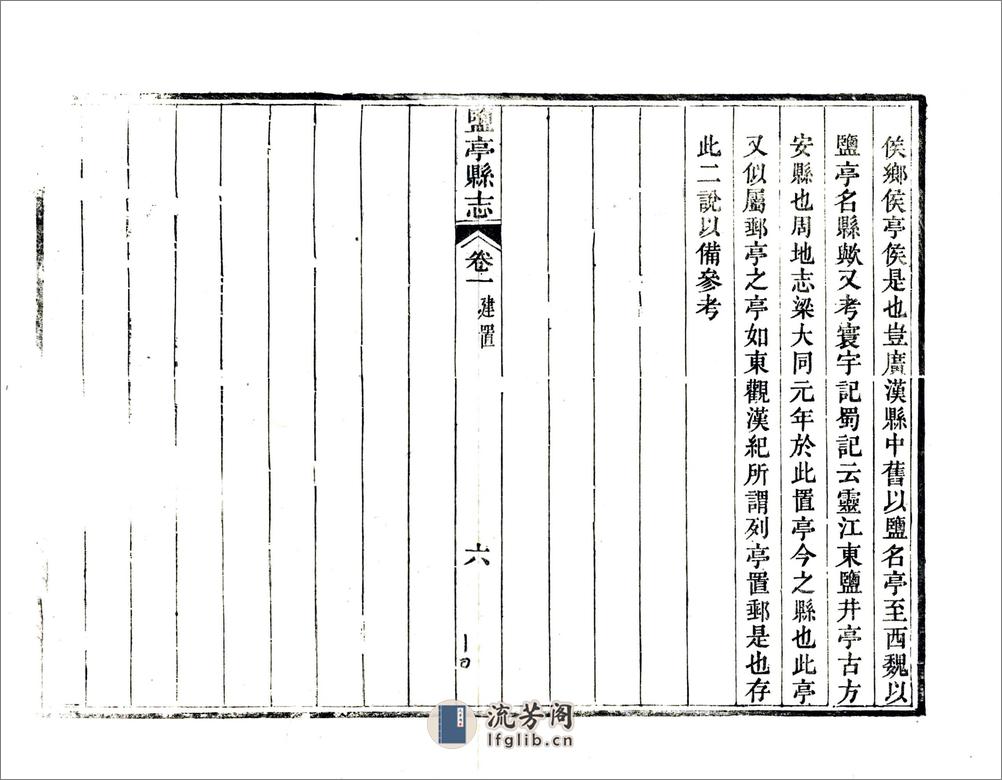 侯鄉侯亭侯是也豈廣漢縣中舊以鹽名亭至西魏以
鹽亭名縣歟又考寰宇記蜀記云靈江東鹽井亭古方
安縣也周地志梁大同元年於此置亭今之縣也此亭
又似屬郵亭之亭如東觀漢紀所謂列亭置郵是也存
此二說以備參考
鹽亭縣志
卷一
建置
六
一四
流芳阁
lfglib.cn